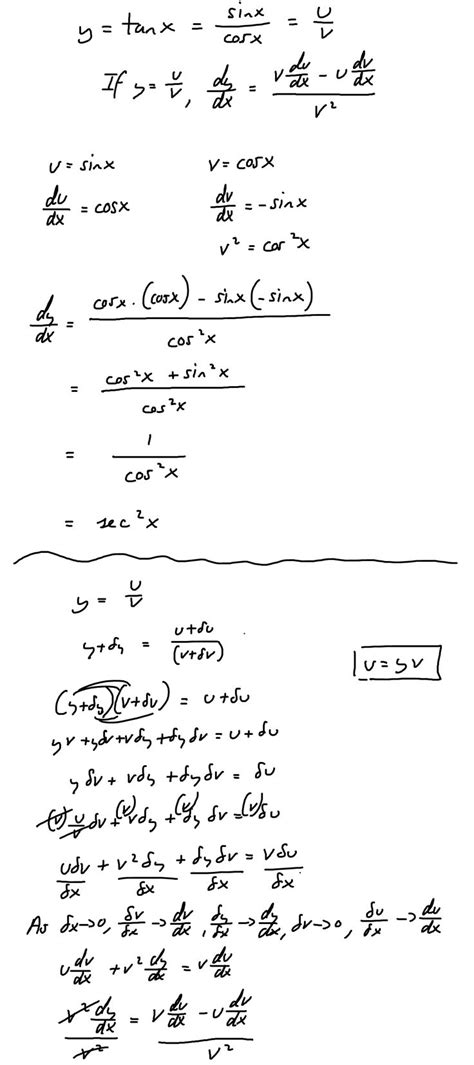 y = tanx = sinx/cosx = u/v
If y = u/v, dy/dx = (v du/dx - u dv/dx)/v²
u = sinx v = cosx
du/dx = cosx dv/dx = -sinx
v² = cos²x
dy/dx = (cosx · (cosx) - sinx(-sinx))/cos²x
= (cos²x + sin²x)/cos²x
= 1/cos²x
= sec²x
y = u/v
y+δy = (u+δu)/(v+δv)
u = yv
(y+δy)(v+δv) = u+δu
yv + yδv + vδy + δyδv = u + δu
yδv + vδy + δyδv = δu
(v)u/v δv + (v)vδy + (v)δyδv = (v)δu
uδv/δx + v²δy/δx + δyδv/δx = vδu/δx
As δx→0, δv/δx → dv/dx, δy/δx → dy/dx, δv→0, δu/δx → du/dx
u dv/dx + v² dy/dx = v du/dx
v² dy/dx / v² = (v du/dx - u dv/dx)/v²